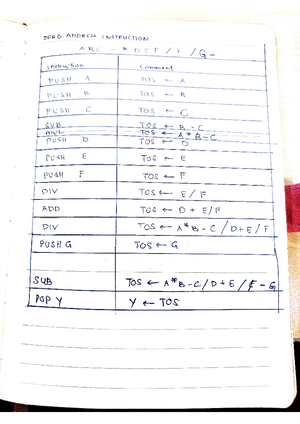 ZERO ADDRESS INSTRUCTION
ABC - * DEF / + / G -
Instruction Comment
PUSH A TOS ← A
PUSH B TOS ← B
PUSH C TOS ← C
SUB TOS ← B - C
MUL TOS ← A * B - C
PUSH D TOS ← D
PUSH E TOS ← E
PUSH F TOS ← F
DIV TOS ← E / F
ADD TOS ← D + E/F
DIV TOS ← A * B - C / D + E / F
PUSH G TOS ← G
SUB TOS ← A * B - C / D + E / F - G
POP Y Y ← TOS